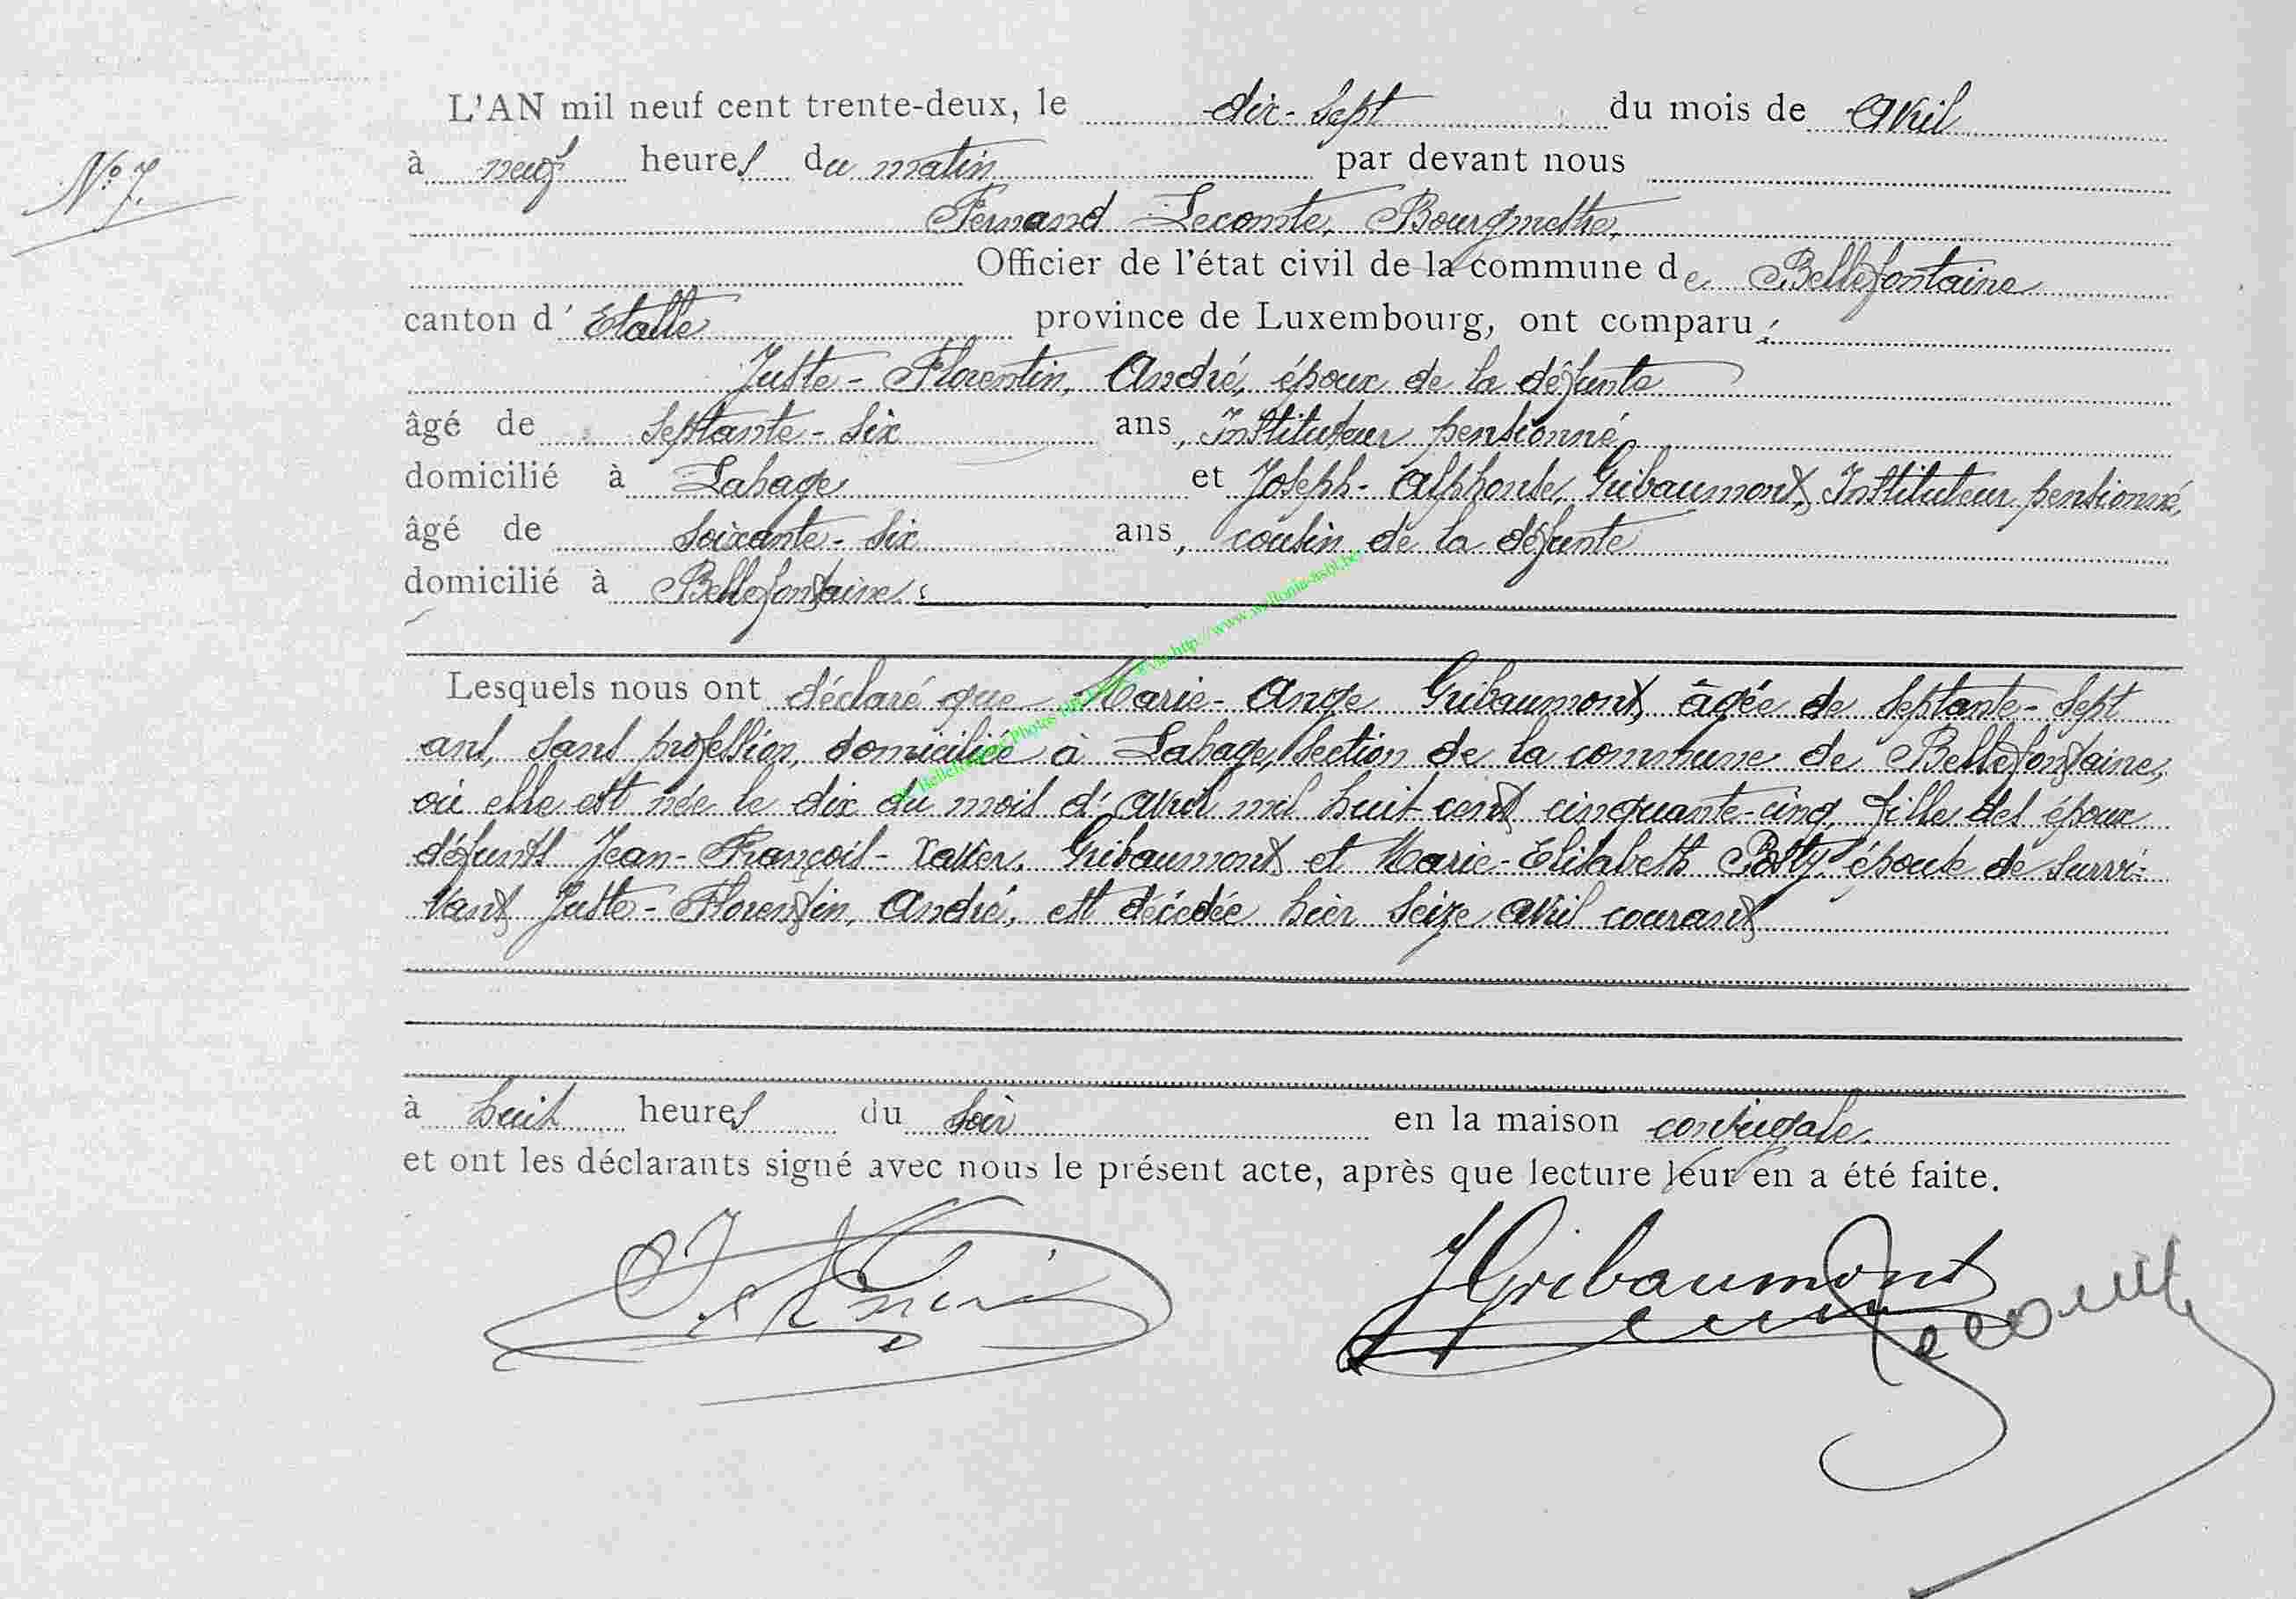 L'AN mil neuf cent trente-deux, le dix-sept du mois de Avril
à neuf heures du matin par devant nous
N° 7.
Fernand Lecomte, Bourgmestre,
Officier de l'état civil de la commune de Bellefontaine
canton d'Etalle province de Luxembourg, ont comparu :
Juste-Florentin, André, époux de la défunte
âgé de septante-six ans, Instituteur pensionné,
domicilié à Lahage et Joseph-Alphonse, Gribaumont, Instituteur pensionné,
âgé de soixante-six ans, cousin de la défunte
domicilié à Bellefontaine :
Lesquels nous ont déclaré que Marie-Ange Gribaumont, âgée de septante-sept
ans, sans profession, domiciliée à Lahage, section de la commune de Bellefontaine,
où elle est née le dix du mois d'avril mil huit cent cinquante-cinq, fille des époux
défunts Jean-François-Xavier, Gribaumont et Marie-Elisabeth Posty, épouse de survi-
vant Juste-Florentin, André, est décédée hier seize avril courant
à huit heures du soir en la maison conjugale.
et ont les déclarants signé avec nous le présent acte, après que lecture leur en a été faite.
JGribaumont
Lecomte